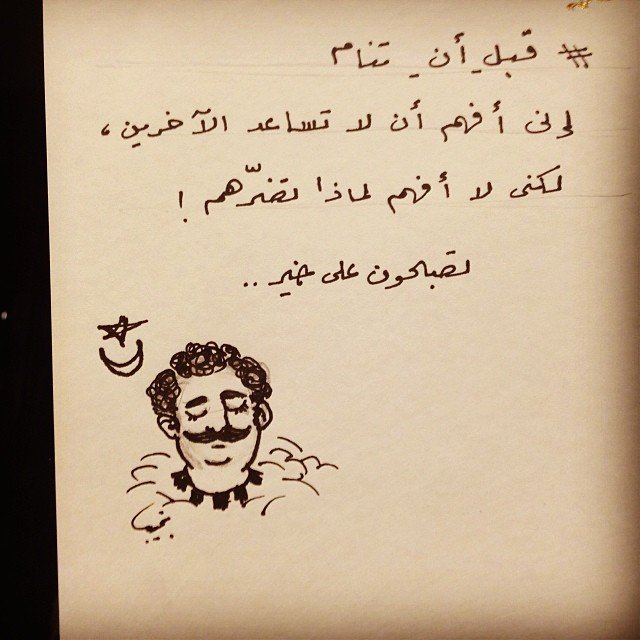 # قبل_أن_تنام
إني أفهم أن لا تساعد الآخرين،
لكنى لا أفهم لماذا تضرّهم !
تصبحون على خير ..